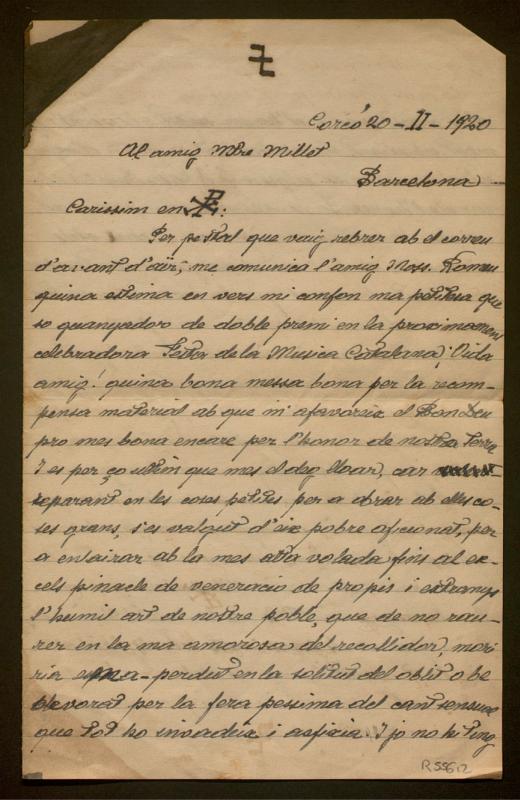 Corcó 20-II-1920
Al amig Mtre Millet
Barcelona
Carissim en
Per postal que vaig rebrer ab el correu
d'avant d'air, me comunica l'amig Moss. Romeu
quina estima en vers mi confon ma petitesa que
so guanyador de doble premi en la proximament
celebradora Festa de la Musica Catalana; Vida
amig! quina bona messa bona per la recom-
pensa material ab que m'afavoreix el Bon Deu
pro mes bona encare per l'honor de nostra Terra
I es per ço ultim que mes el deg lloar, car
reparant en les coses petites per a obrar ab elles co-
ses grans, s'es valgut d'eix pobre aficionat, per
a enlairar ab la mes alta volada fins al ex-
cels pinacle de veneracio de propis i estranys
l'humil art de nostre poble, que de no rau-
rer en la ma amorosa del recollidor, mori-
ria perdut en la solitut del oblit o be
devorat per la fera pessima del cant sensual
que tot ho invadeix i asfixia. I jo no hi ting
R5562